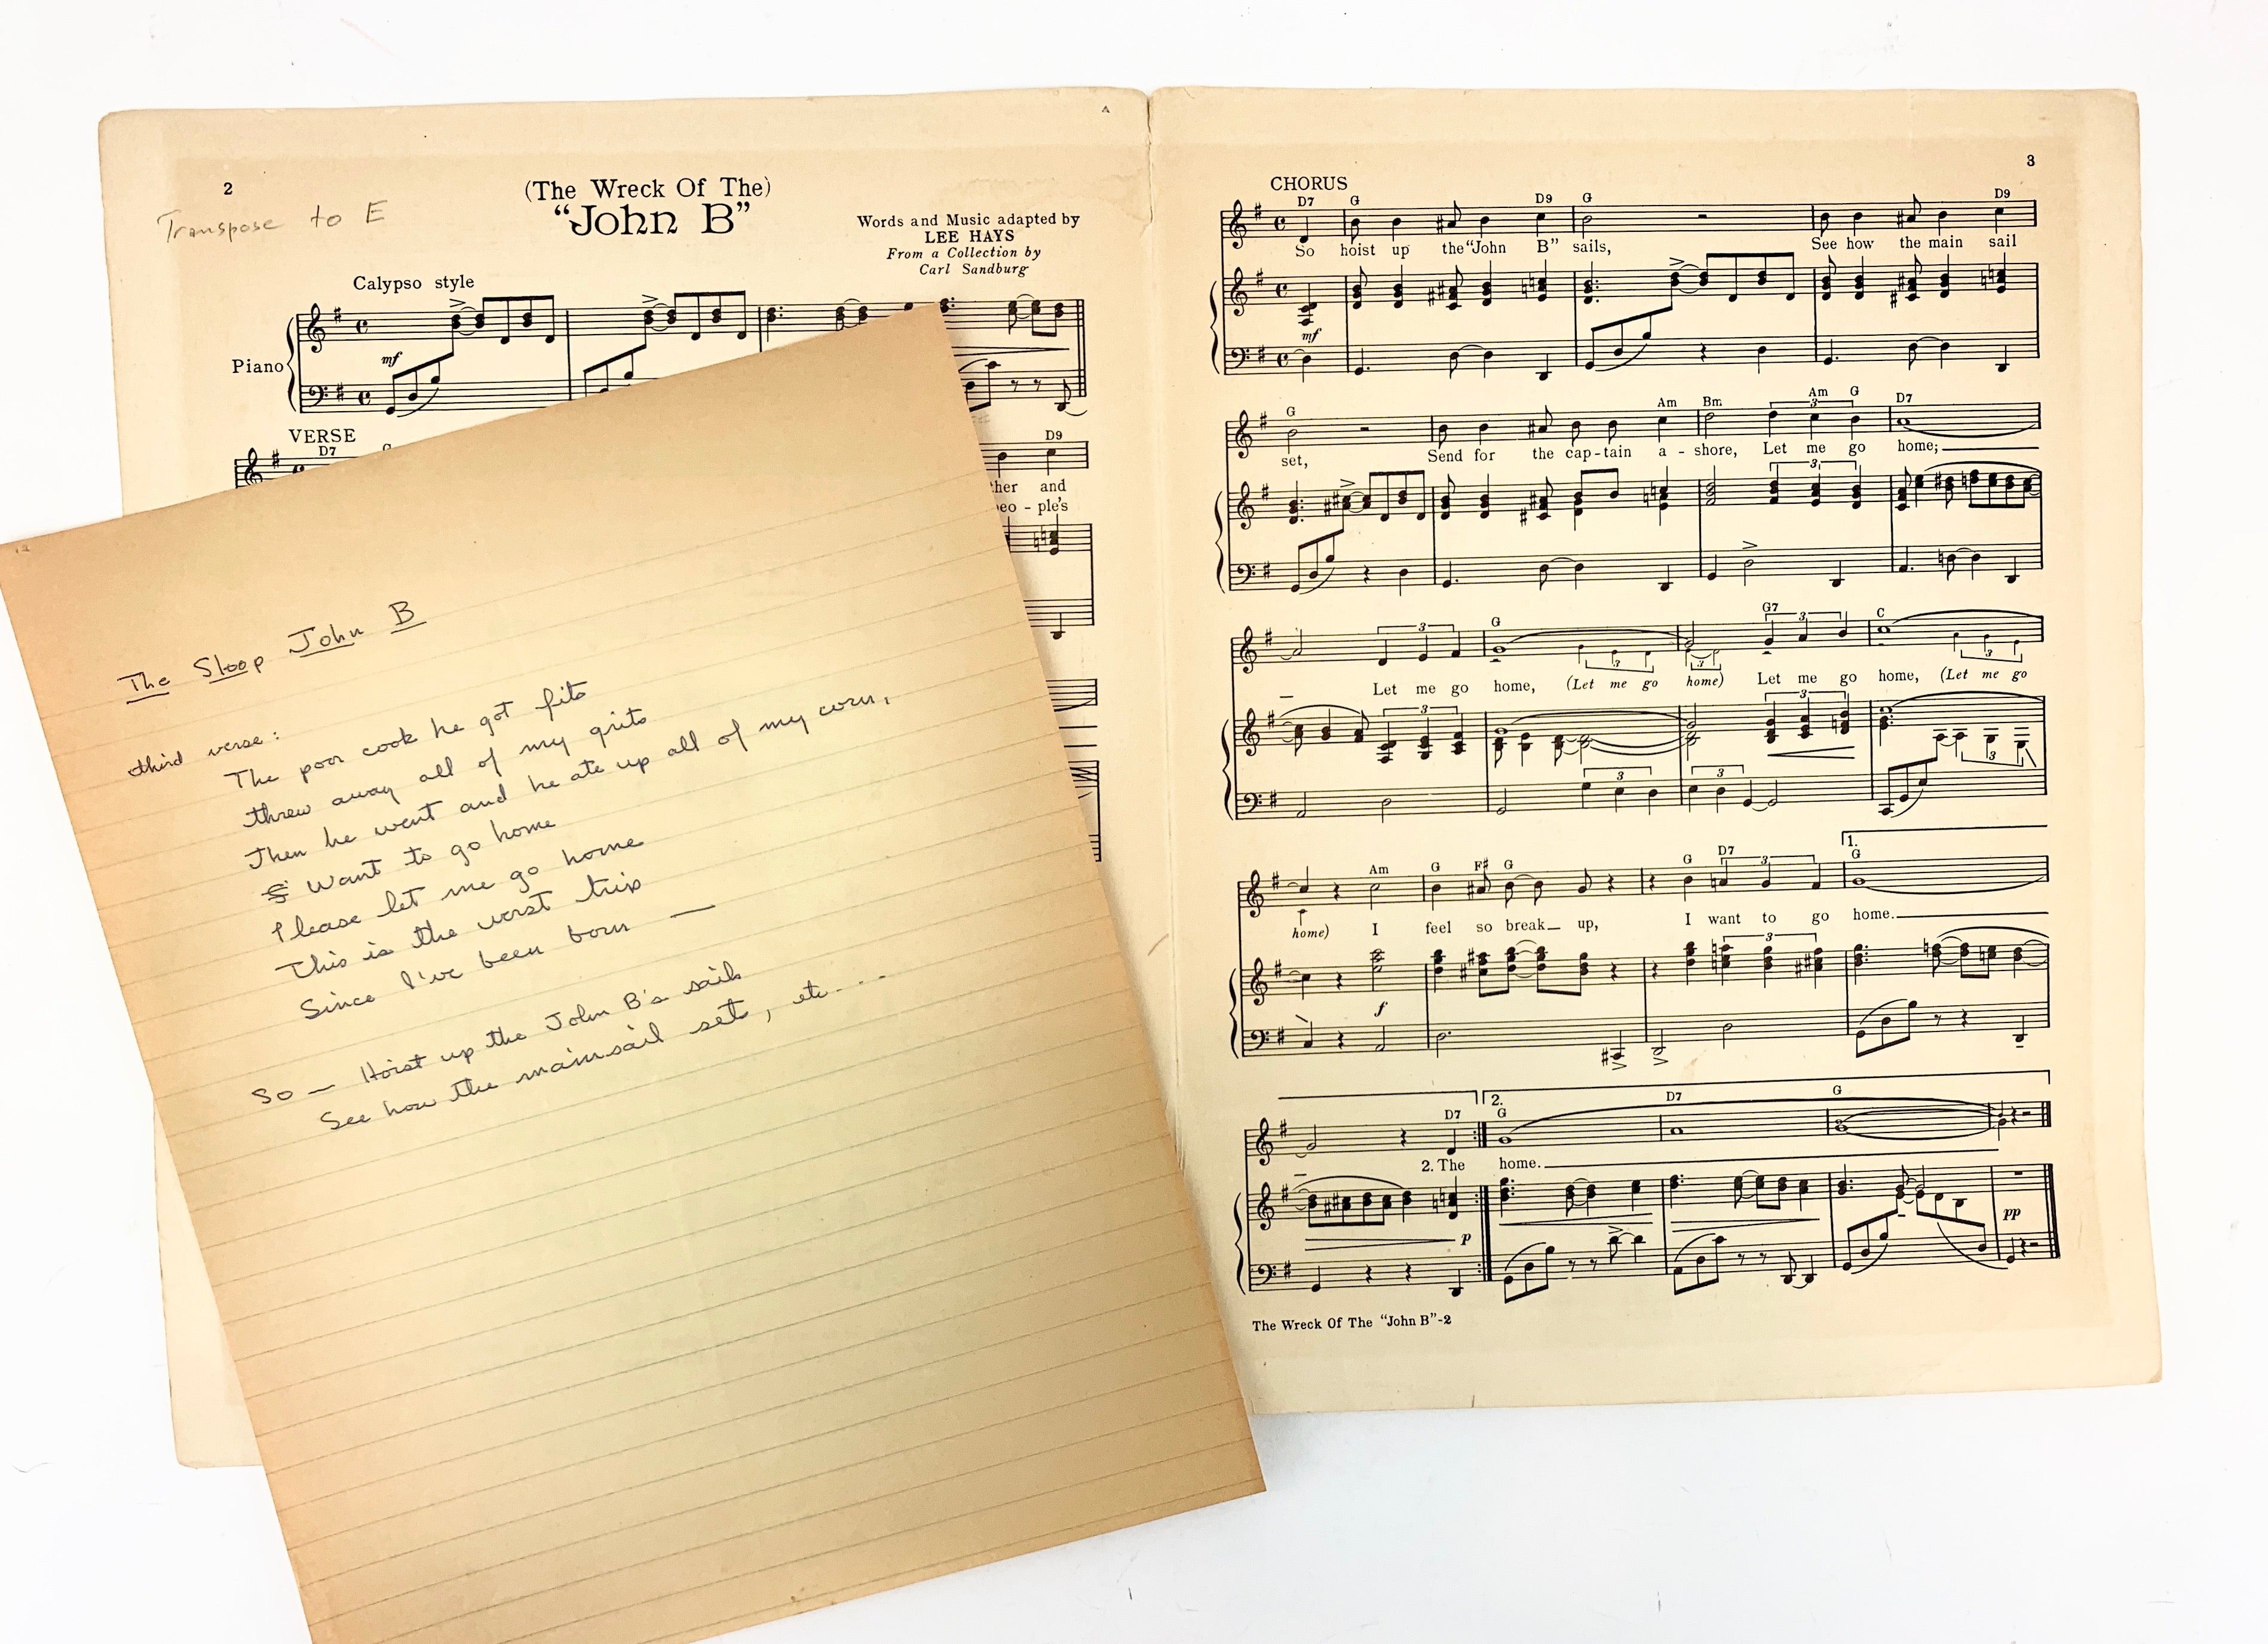 2
Transpose to E
(The Wreck Of The)
“John B”
Words and Music adapted by
LEE HAYS
From a Collection by
Carl Sandburg
Calypso style
Piano
mf
VERSE
D7
D9
ther and
eo - ple's
The Sloop John B
third verse:
The poor cook he got fits
threw away all of my grits
Then he went and he ate up all of my corn,
Want to go home
Please let me go home
This is the worst trip
Since I've been born —
So — Hoist up the John B's sails
See how the mainsail set, etc...
3
CHORUS
D7 G D9 G D9
So hoist up the “John B” sails, See how the main sail
mf
G Am Bm Am G D7
3
set, Send for the cap - tain a - shore, Let me go home;
3
G G7 C
3 3 3 3
Let me go home, (Let me go home) Let me go home, (Let me go
3 3 3
3 3
1.
Am G F# G G D7 G
3
home) I feel so break up, I want to go home.
3
f
2.
D7 G D7 G
2. The home.
p pp
The Wreck Of The “John B”-2